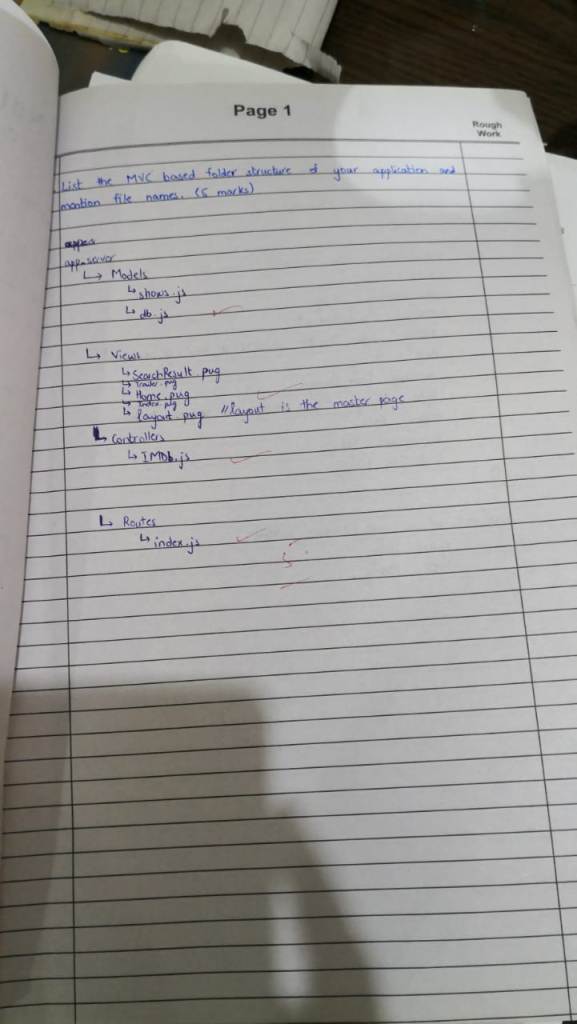 Page 1
Rough
Work
List the MVC based folder structure of your application and
mention file names. (5 marks)
app-server
↳ Models
↳ shows.js
↳ db.js
↳ Views
↳ SearchResult.pug
↳ Trailer.pug
↳ Home.pug
↳ Index.pug
↳ layout.pug //layout is the master page
↳ Controllers
↳ IMDb.js
↳ Routes
↳ index.js
5